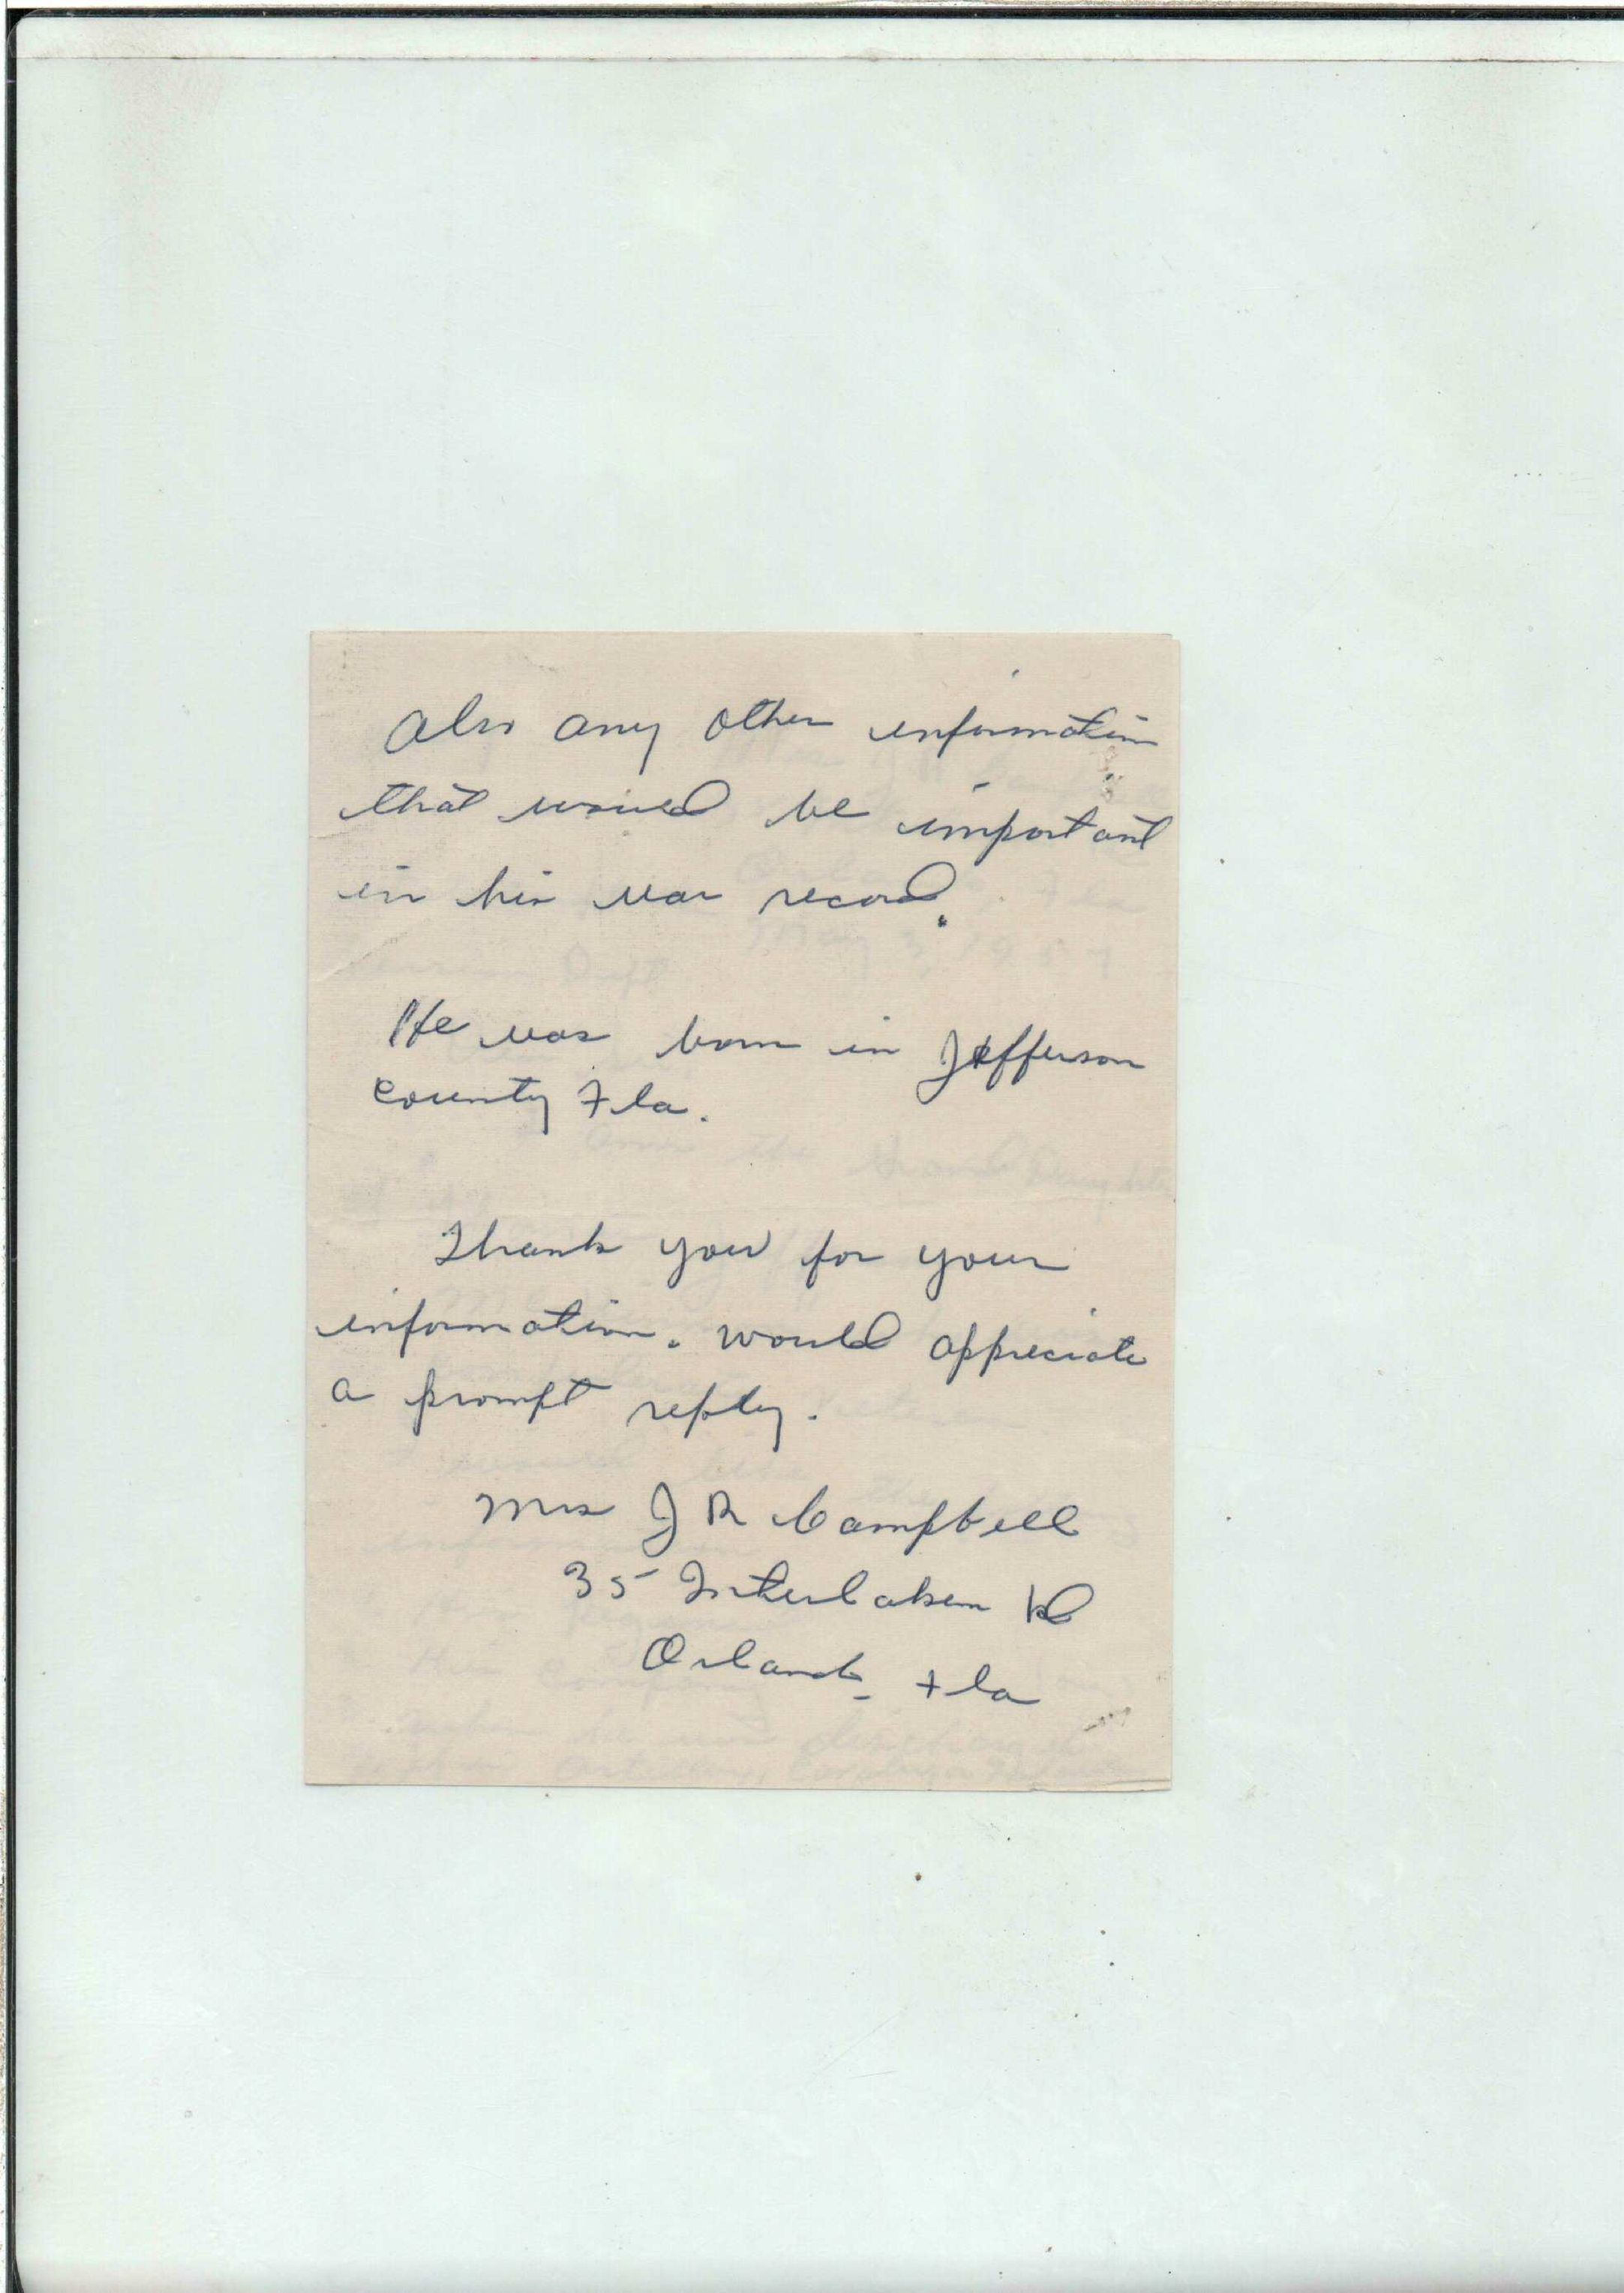 Also any other information
that would be important
in his war record.
He was born in Jefferson
County Fla.
Thank you for your
information. Would appreciate
a prompt reply.
Mrs J R Campbell
35 Interlaken Rd
Orlando, Fla